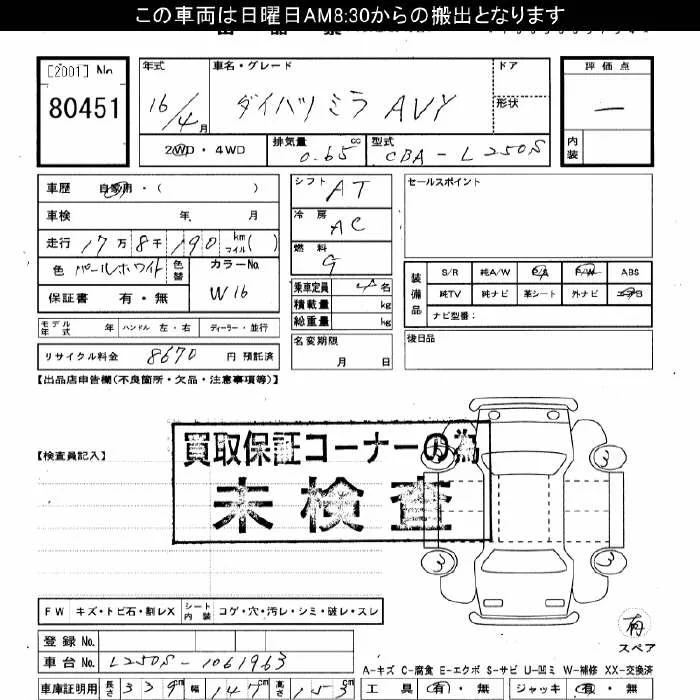 この車両は日曜日AM8:30からの搬出となります
[2001] No
80451
年式 16/4月
車名・グレード ダイハツ ミラ AVY
ドア
形状
評価点
―
内装
2WD・4WD
排気量 0.65 cc
型式 CBA-L250S
車歴 自家用・( )
車検 年 月
走行 17万8千190 km マイル( )
色 パールホワイト 色替
カラーNo. W16
保証書 有・無
モデル年式 年 ハンドル 左・右 ディーラー・並行
リサイクル料金 8670 円 預託済
シフト AT
冷房 AC
燃料 G
乗車定員 4 名
積載量 kg
総重量 kg
名変期限
月 日
セールスポイント
装備品
S/R 純A/W P/S P/W ABS
純TV 純ナビ 革シート 外ナビ エアB
ナビ型番:
後日品
【出品店申告欄(不良箇所・欠品・注意事項等)】
【検査員記入】
買取保証コーナーの為
未検査
3 3
3 3
FW キズ・トビ石・割レX シート内装 コゲ・穴・汚レ・シミ・破レ・スレ
有
スペア
登録 No.
車台 No. L250S-1061963
車庫証明用 長さ 339cm 幅 147cm 高さ 153cm
A-キズ C-腐食 E-エクボ S-サビ U-凹ミ W-補修 XX-交換済
工具 有・無 ジャッキ 有・無